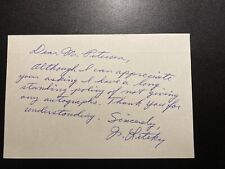 Dear Mr. Petersen,
Although I can appreciate
your asking I have a long
standing policy of not giving
any autographs. Thank you for
understanding. Sincerely,